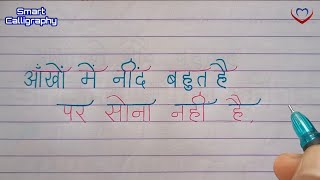 Smart
Calligraphy
आँखों में नींद बहुत है
पर सोना नहीं है.